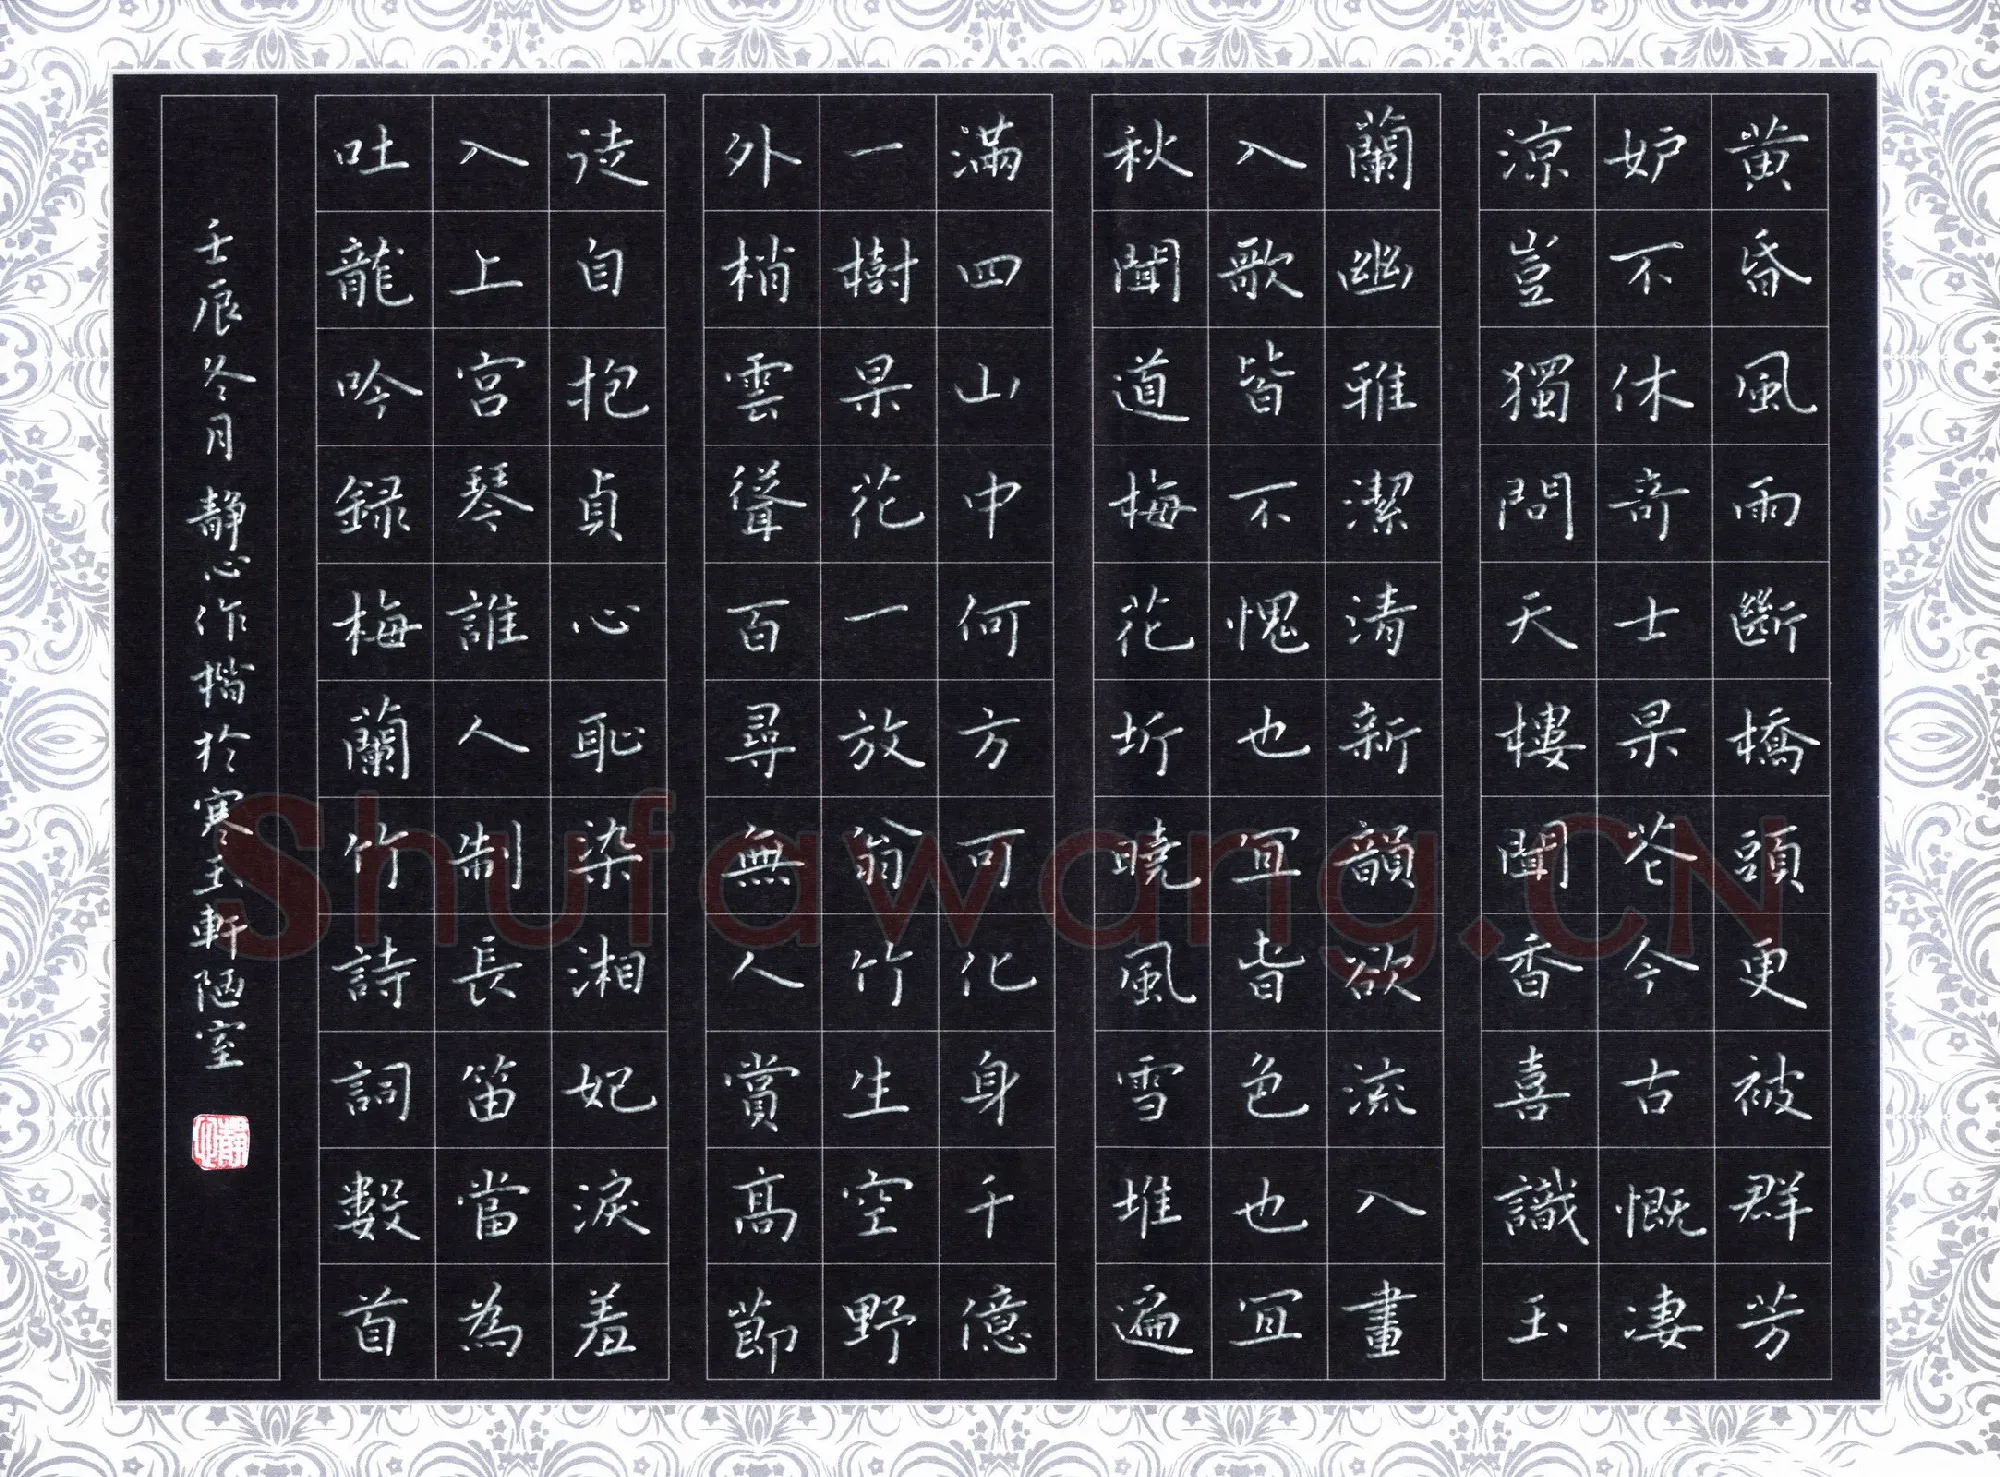 黄昏風雨斷橋頭更被群芳
妒不休奇士杲花今古慨凄
涼豈獨問天樓聞香喜識玉
蘭幽雅潔清新韻欲流入畫
入歌皆不愧也宜旹色也宜
秋聞道梅花坼曉風雪堆遍
滿四山中何方可化身千億
一樹杲花一放翁竹生空野
外梢雲聳百尋無人賞高節
徒自抱貞心恥染湘妃淚羞
入上宮琴誰人制長笛當為
吐龍吟録梅蘭竹詩詞數首
壬辰冬月静心作檔於寒玉軒陋室
静心
Shufawang.CN